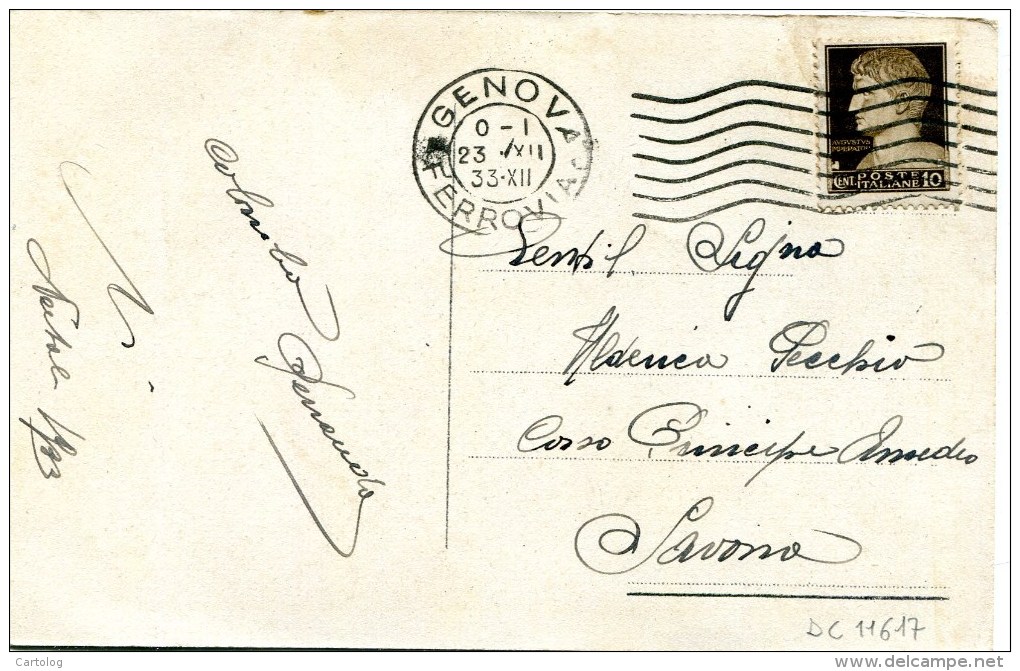 GENOVA
FERROVIA
0-1
23·XII
33·XII
AUGUSTUS
IMPERATOR
POSTE
CENT. ITALIANE 10
Gentil. Signa
Alderica Pecchio
Corso Principe Amedeo
Savona
Colombo
Natale 1933
DC 11617
Cartolog
www.delcampe.net